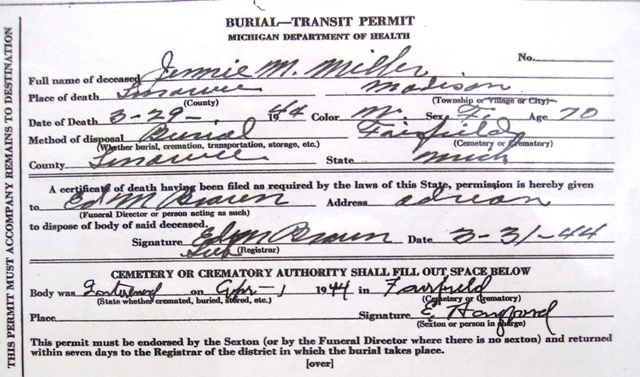 BURIAL—TRANSIT PERMIT
MICHIGAN DEPARTMENT OF HEALTH
No.
Full name of deceased Jennie M. Miller
Place of death Lenawee Madison
(County) (Township or Village or City)
Date of Death 3-29-, 1944 Color W. Sex F. Age 70
Method of disposal Burial Fairfield
(Whether burial, cremation, transportation, storage, etc.) (Cemetery or Crematory)
County Lenawee State Mich
A certificate of death having been filed as required by the laws of this State, permission is hereby given
to Ed M Brown Address Adrian
(Funeral Director or person acting as such)
to dispose of body of said deceased.
Signature Ed M Brown Date 3-31-44
Sub (Registrar)
CEMETERY OR CREMATORY AUTHORITY SHALL FILL OUT SPACE BELOW
Body was Interred on Apr-1 1944 in Fairfield
(State whether cremated, buried, stored, etc.) (Cemetery or Crematory)
Place Signature E.
(Sexton or person in charge)
This permit must be endorsed by the Sexton (or by the Funeral Director where there is no sexton) and returned
within seven days to the Registrar of the district in which the burial takes place.
[over]
THIS PERMIT MUST ACCOMPANY REMAINS TO DESTINATION